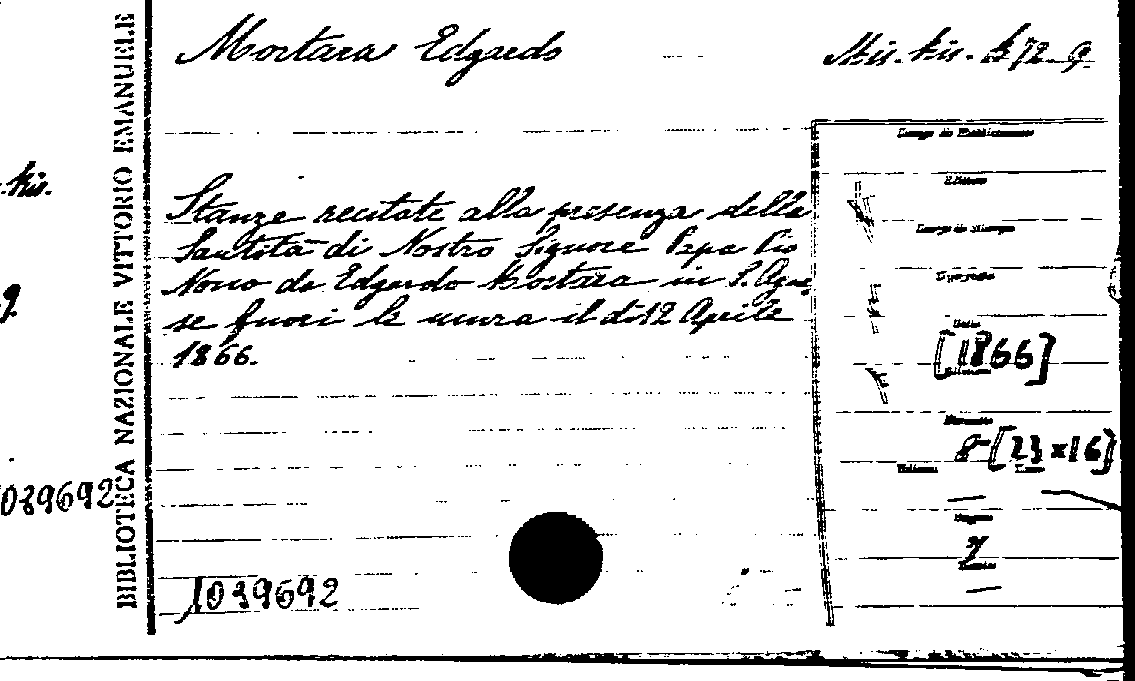 BIBLIOTECA NAZIONALE VITTORIO EMANUELE
Mortara Edgardo
Mis. Ris. B 72-9
Stanze recitate alla presenza della
Santità di Nostro Signore Papa Pio
Nono da Edgardo Mortara in S. Agne
se fuori le mura il dì 12 Aprile
1866.
Luogo di Pubblicazione
Editore
Luogo di Stampa
Tipografia
Data
[1866]
Edizione
Formato
8° [23x16]
Volumi
Pagine
7
1039692
039692